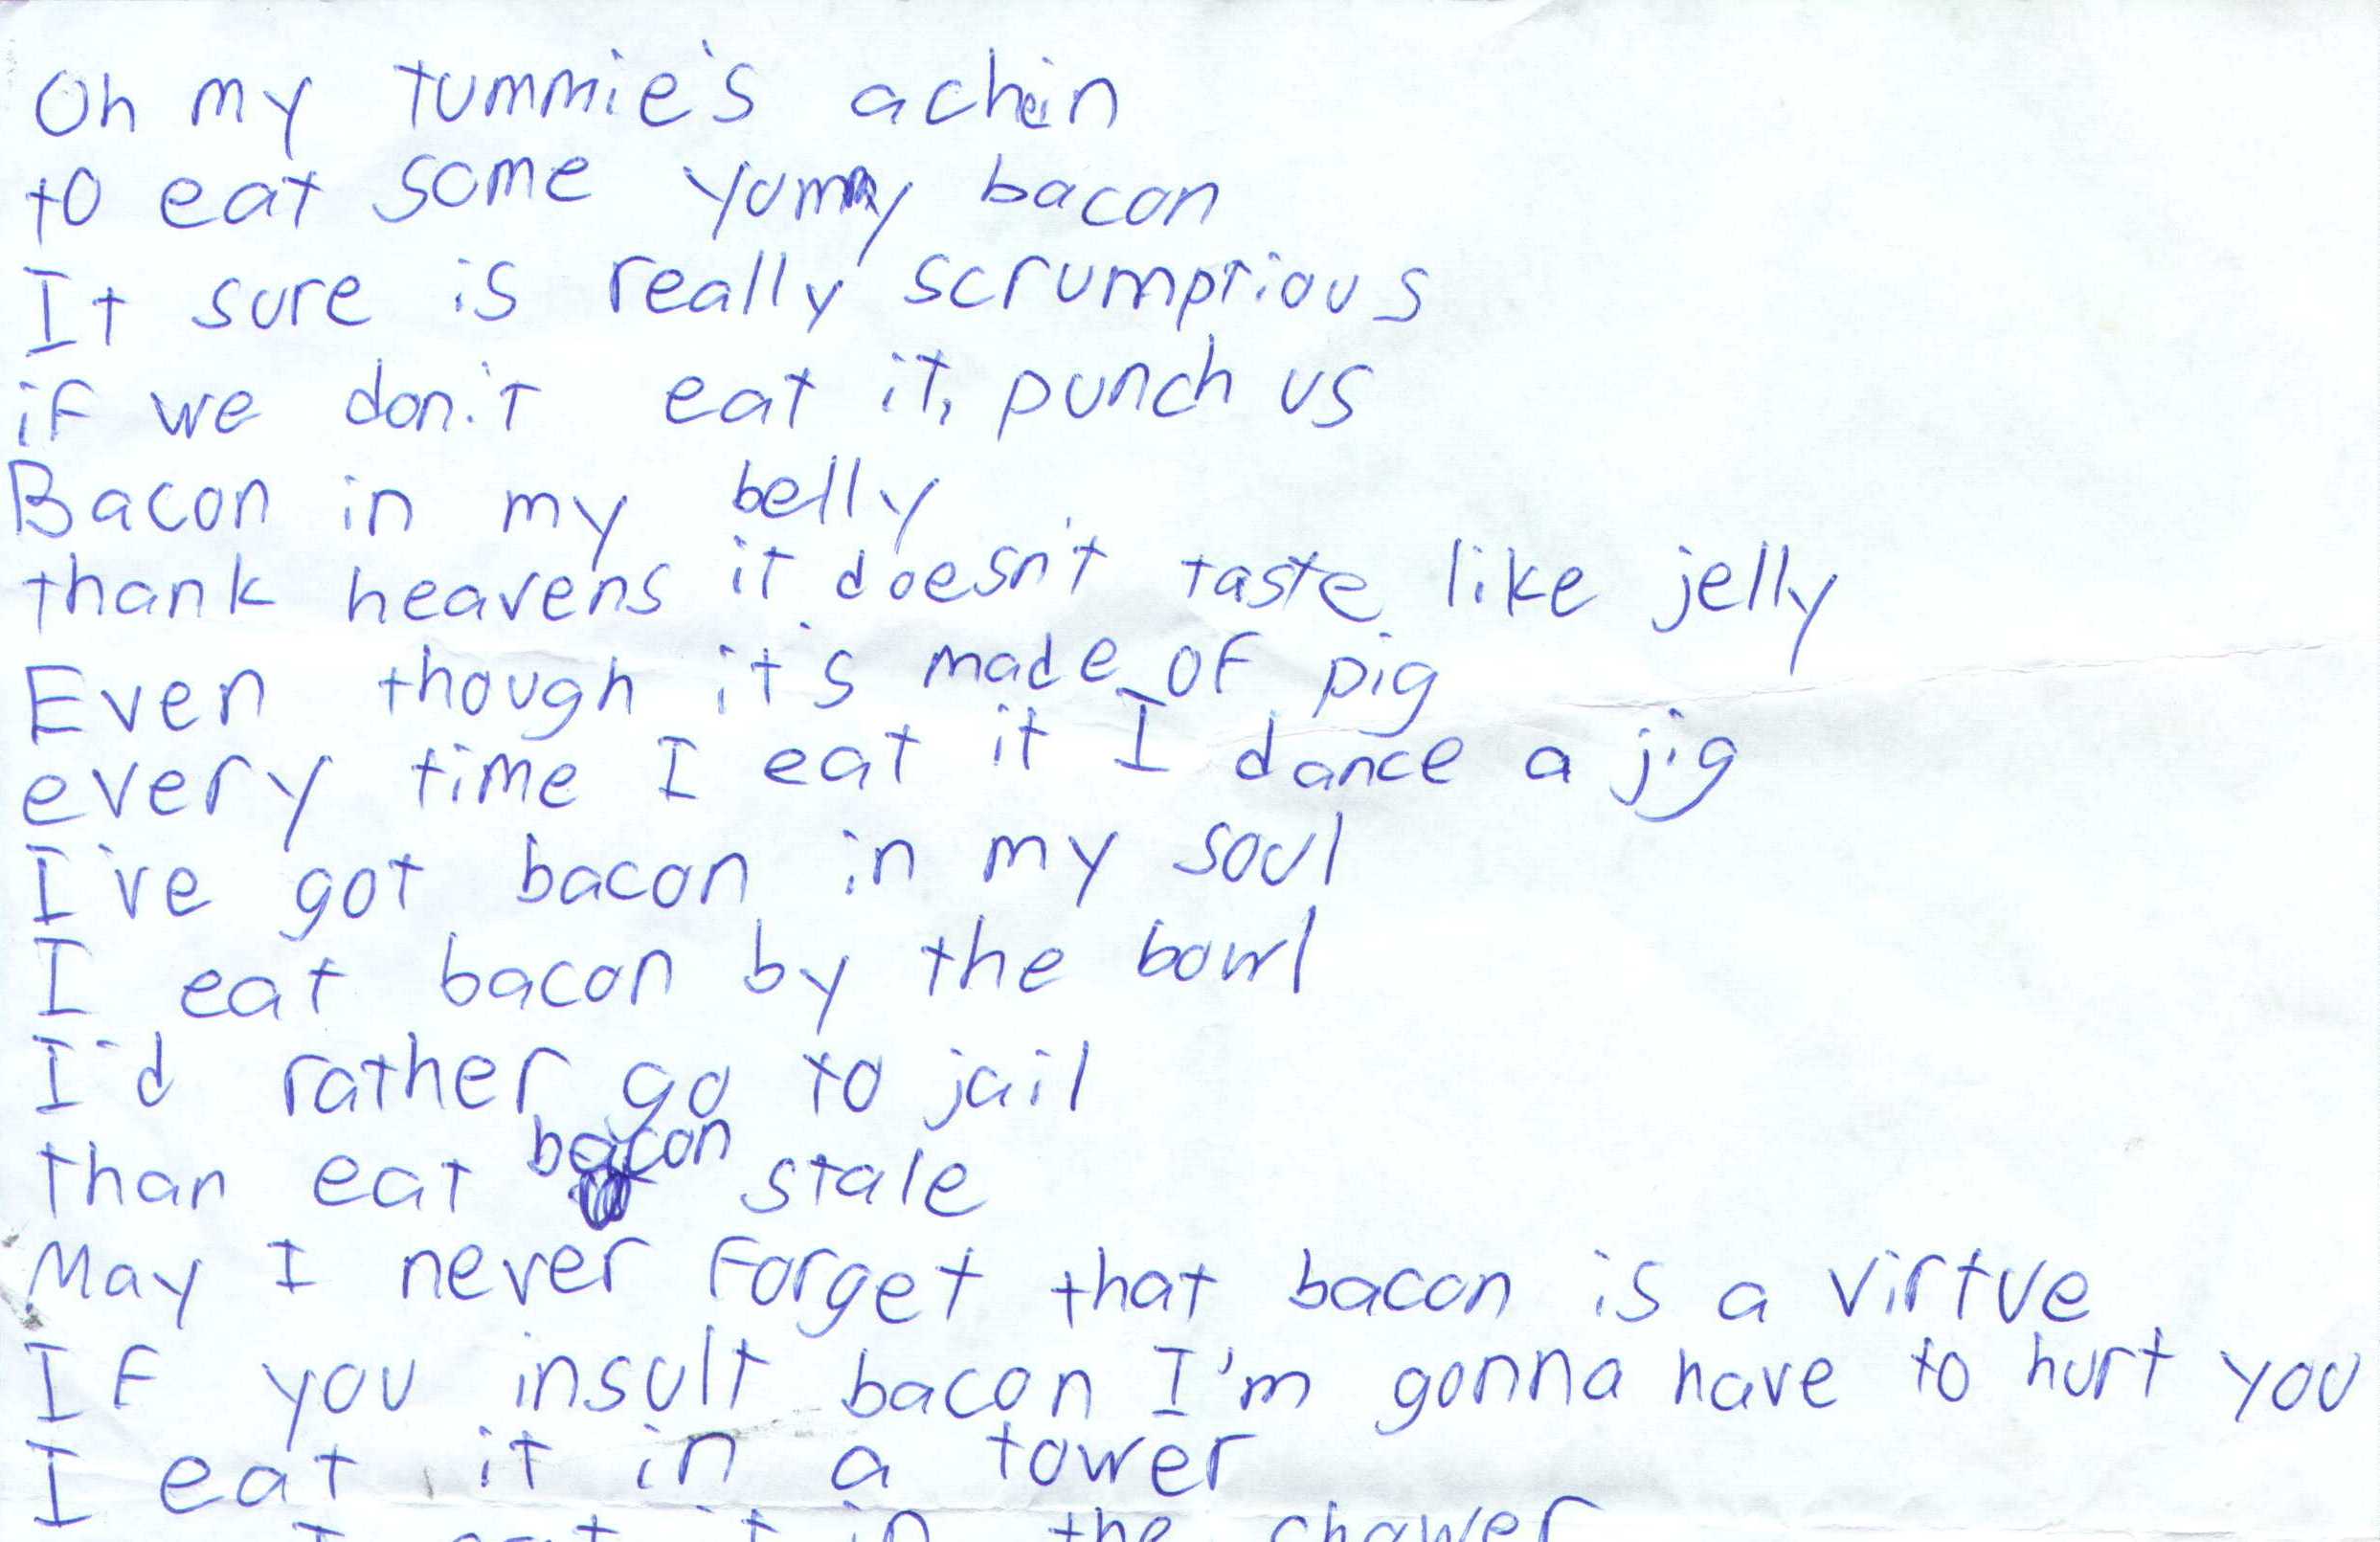 Oh my tummie's achin
to eat some yummy bacon
It sure is really scrumptious
if we don't eat it, punch us
Bacon in my belly
thank heavens it doesn't taste like jelly
Even though it's made of pig
every time I eat it I dance a jig
I've got bacon in my soul
I eat bacon by the bowl
I'd rather go to jail
than eat bacon stale
May I never forget that bacon is a virtue
If you insult bacon I'm gonna have to hurt you
I eat it in a tower
I eat it in the